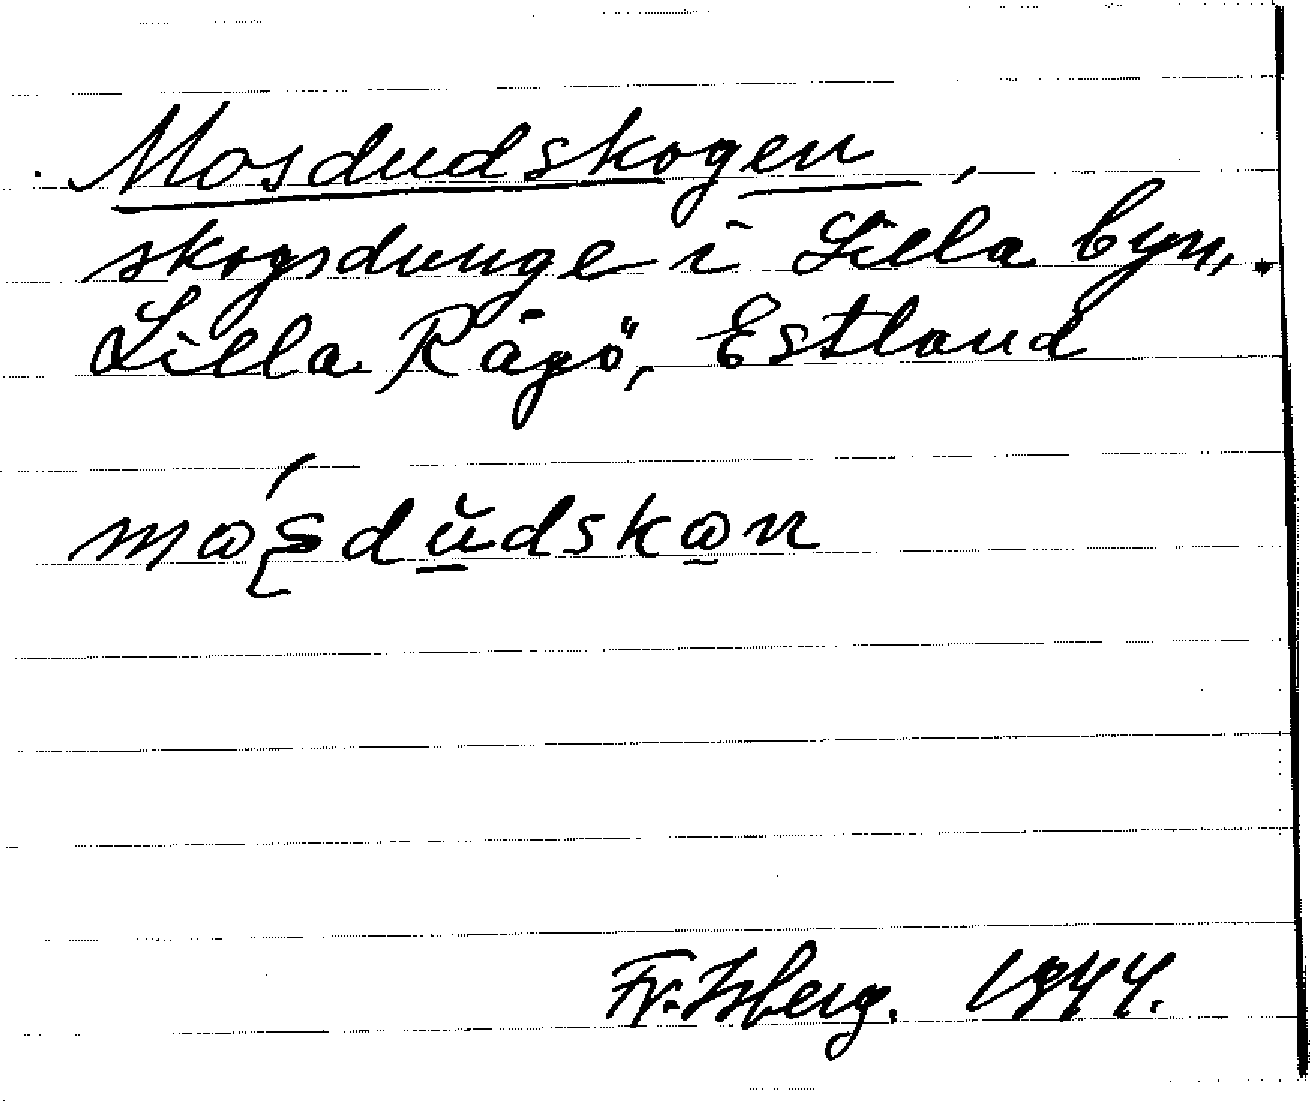 Mosdudskogen,
skogsdunge i Lilla byn,
Lilla Rågö, Estland
Fr. Isberg. 1944.